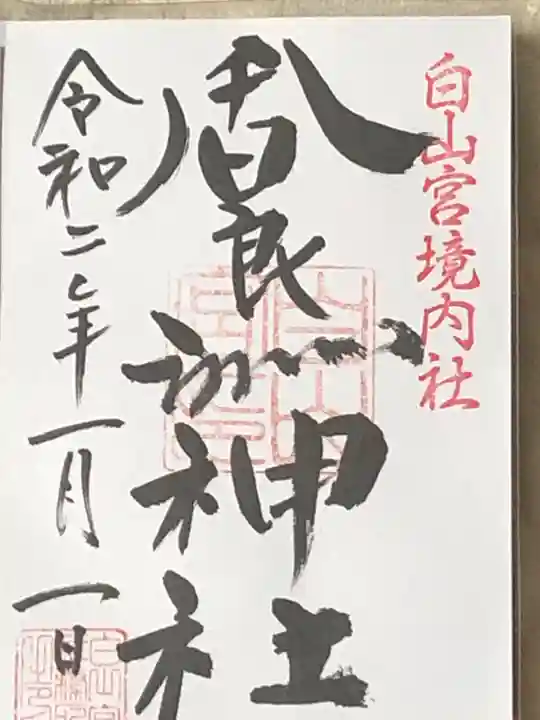 白山宮境内社
香良洲神社
令和二年一月一日